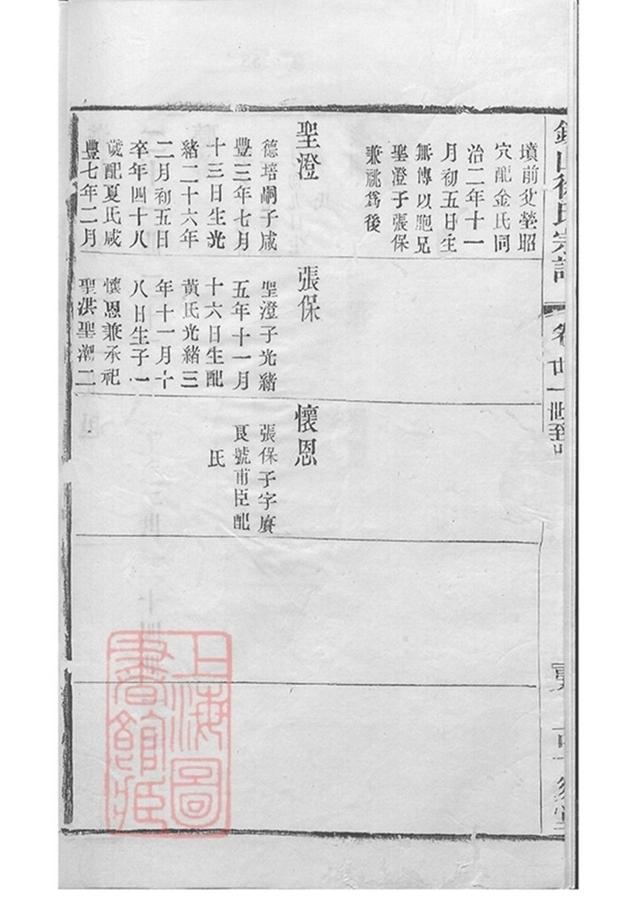 墳前父塋昭
穴配金氏同
治二年十一
月初五日生
無傳以胞兄
聖澄子張保
兼祧爲後
聖澄
德培嗣子咸
豐三年七月
十三日生光
緒二十六年
二月初五日
卒年四十八
歲配夏氏咸
豐七年二月
張保
聖澄子光緒
五年十一月
十六日生配
黃氏光緒三
年十一月十
八日生子一
懷恩兼承祀
聖洪聖潮二
懷恩
張保子字賡
良號甫臣配
氏
山徐氏宗譜
卷廿一世至
上海圖
書館藏